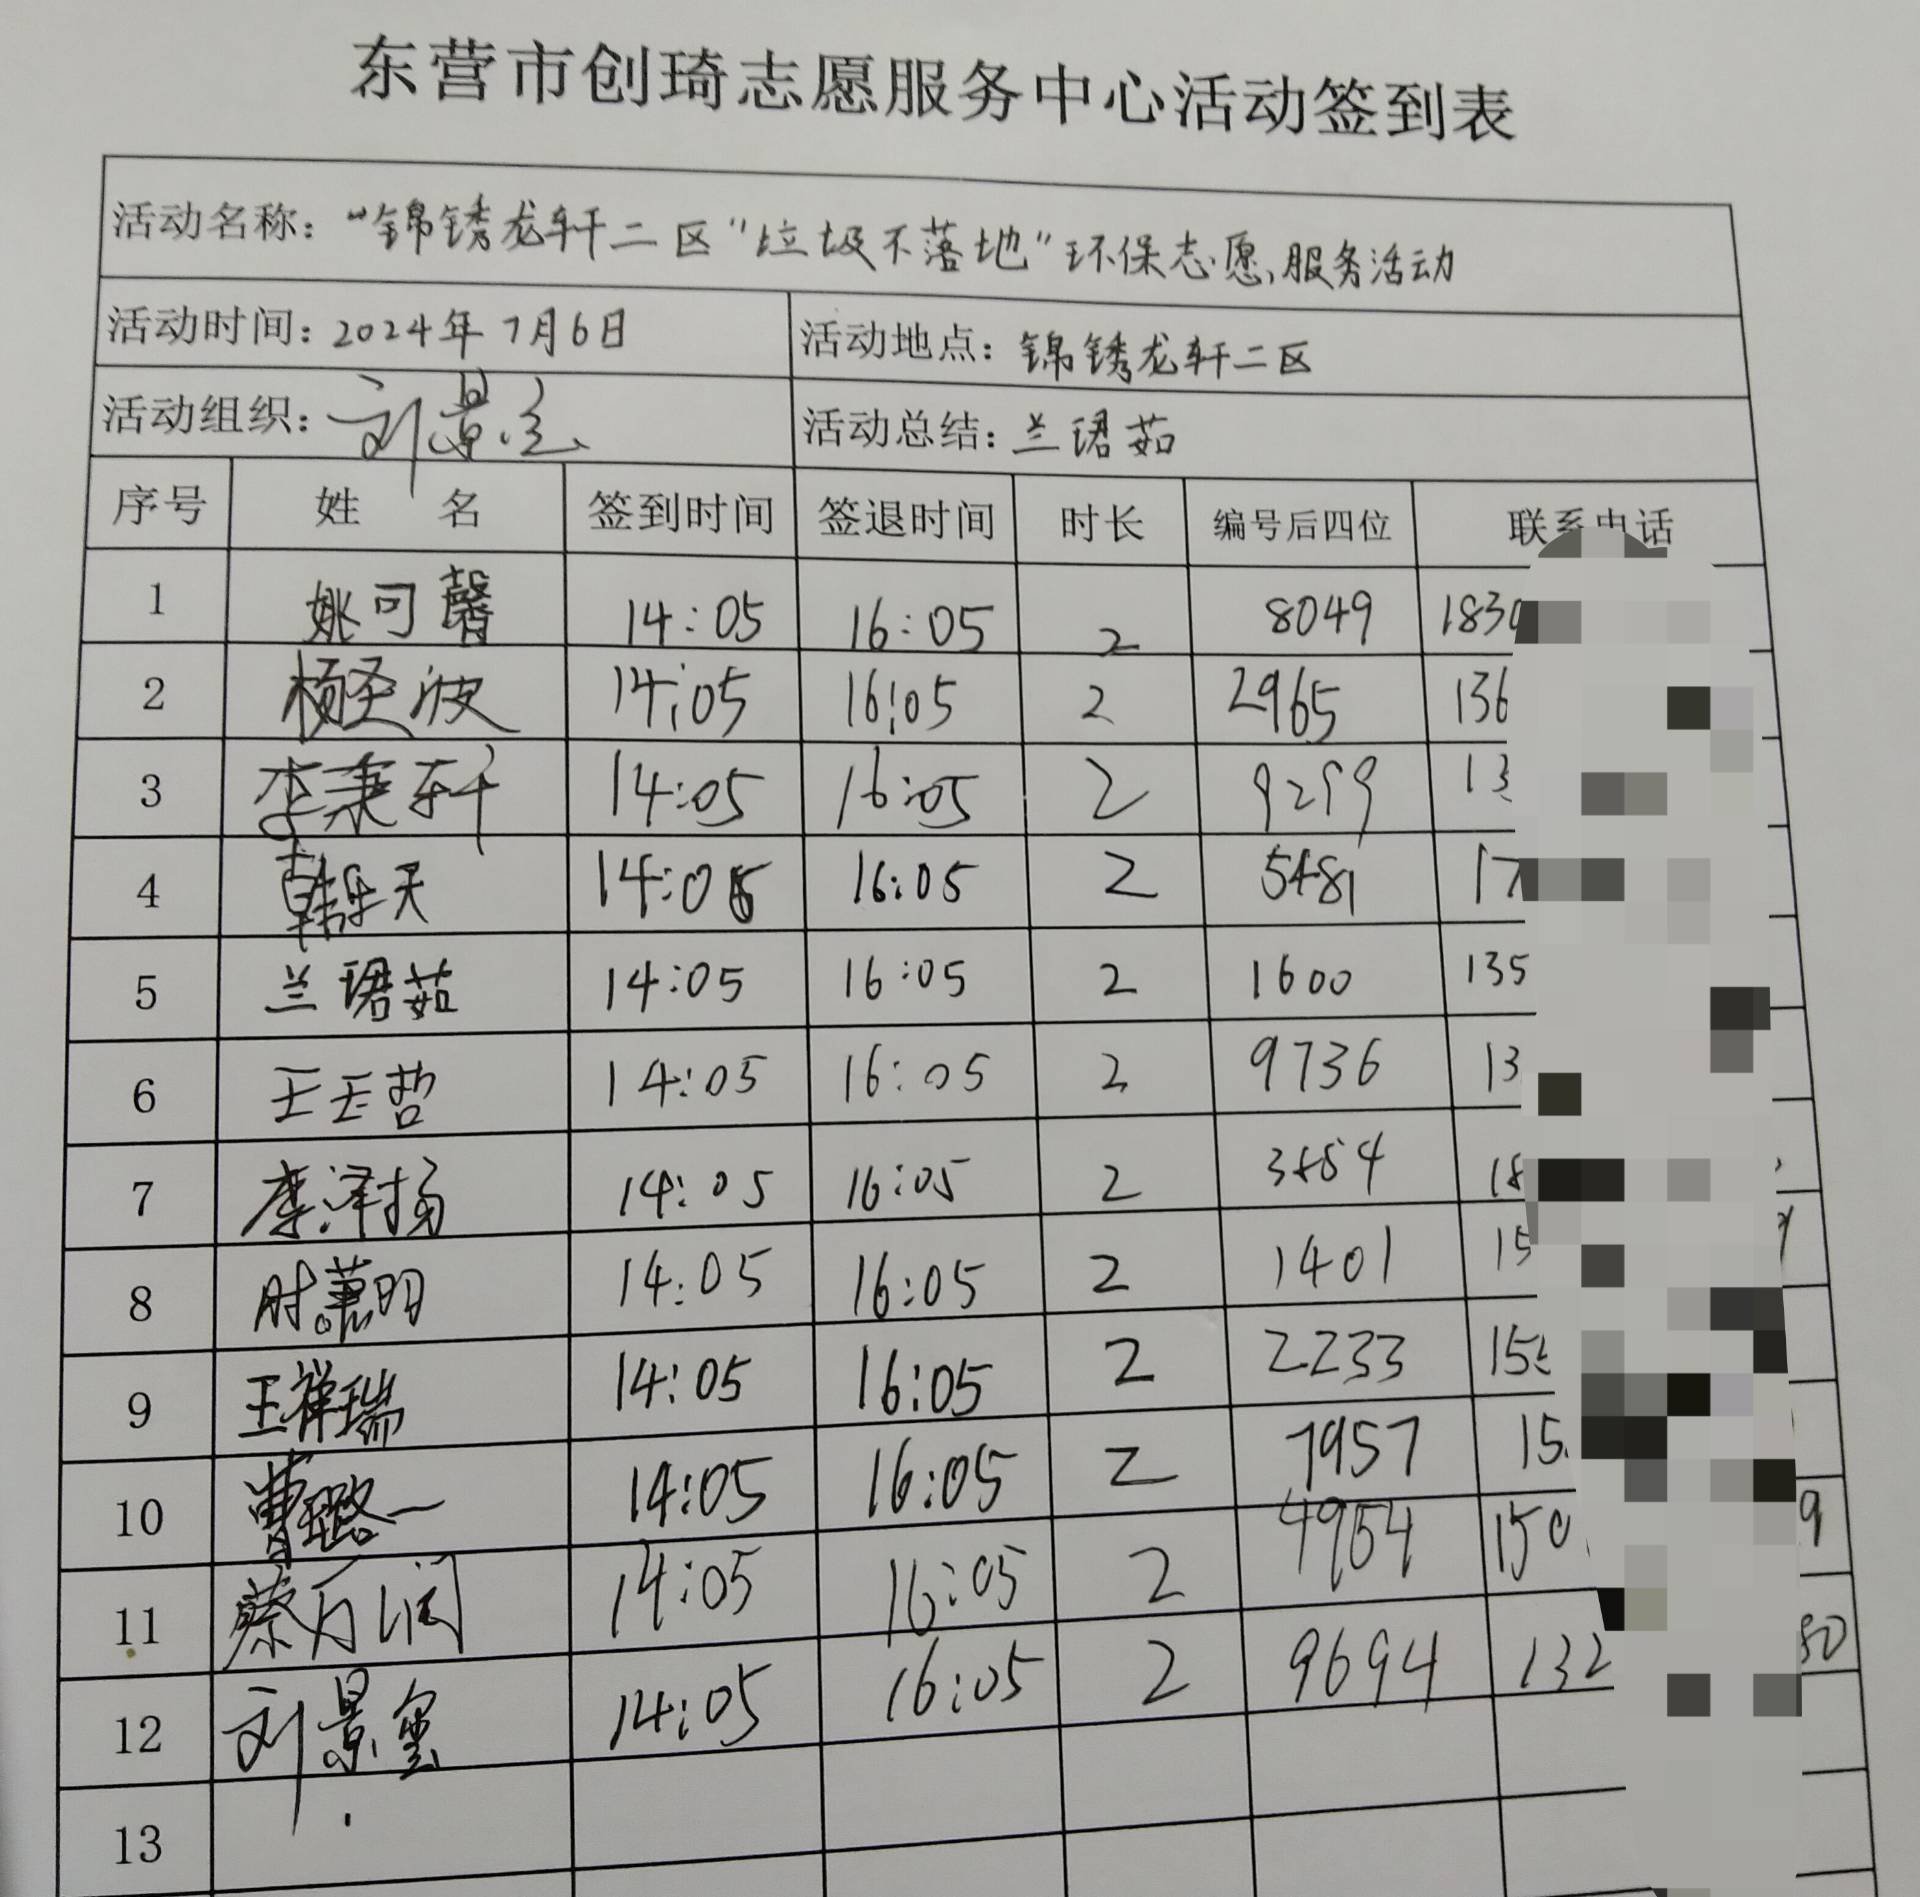 东营市创琦志愿服务中心活动签到表
活动名称：“锦锈龙轩二区“垃圾不落地”环保志愿服务活动
活动时间：2024年7月6日 活动地点：锦锈龙轩二区
活动组织：刘景玺 活动总结：兰珺茹
序号 姓 名 签到时间 签退时间 时长 编号后四位 联系电话
1 姚可馨 14:05 16:05 2 8049 1830
2 杨圣波 14:05 16:05 2 2965 136
3 李秉轩 14:05 16:05 2 9299 13
4 韩乐天 14:05 16:05 2 5481 17
5 兰珺茹 14:05 16:05 2 1600 135
6 王玉哲 14:05 16:05 2 9736 13
7 李泽扬 14:05 16:05 2 18
8 时萧明 14:05 16:05 2 1401 15
9 王祥瑞 14:05 16:05 2 2233 155
10 曹璐一 14:05 16:05 2 7957 15
11 蔡万润 14:05 16:05 2 4954 150 9
12 刘景玺 14:05 16:05 2 9694 132 80
13